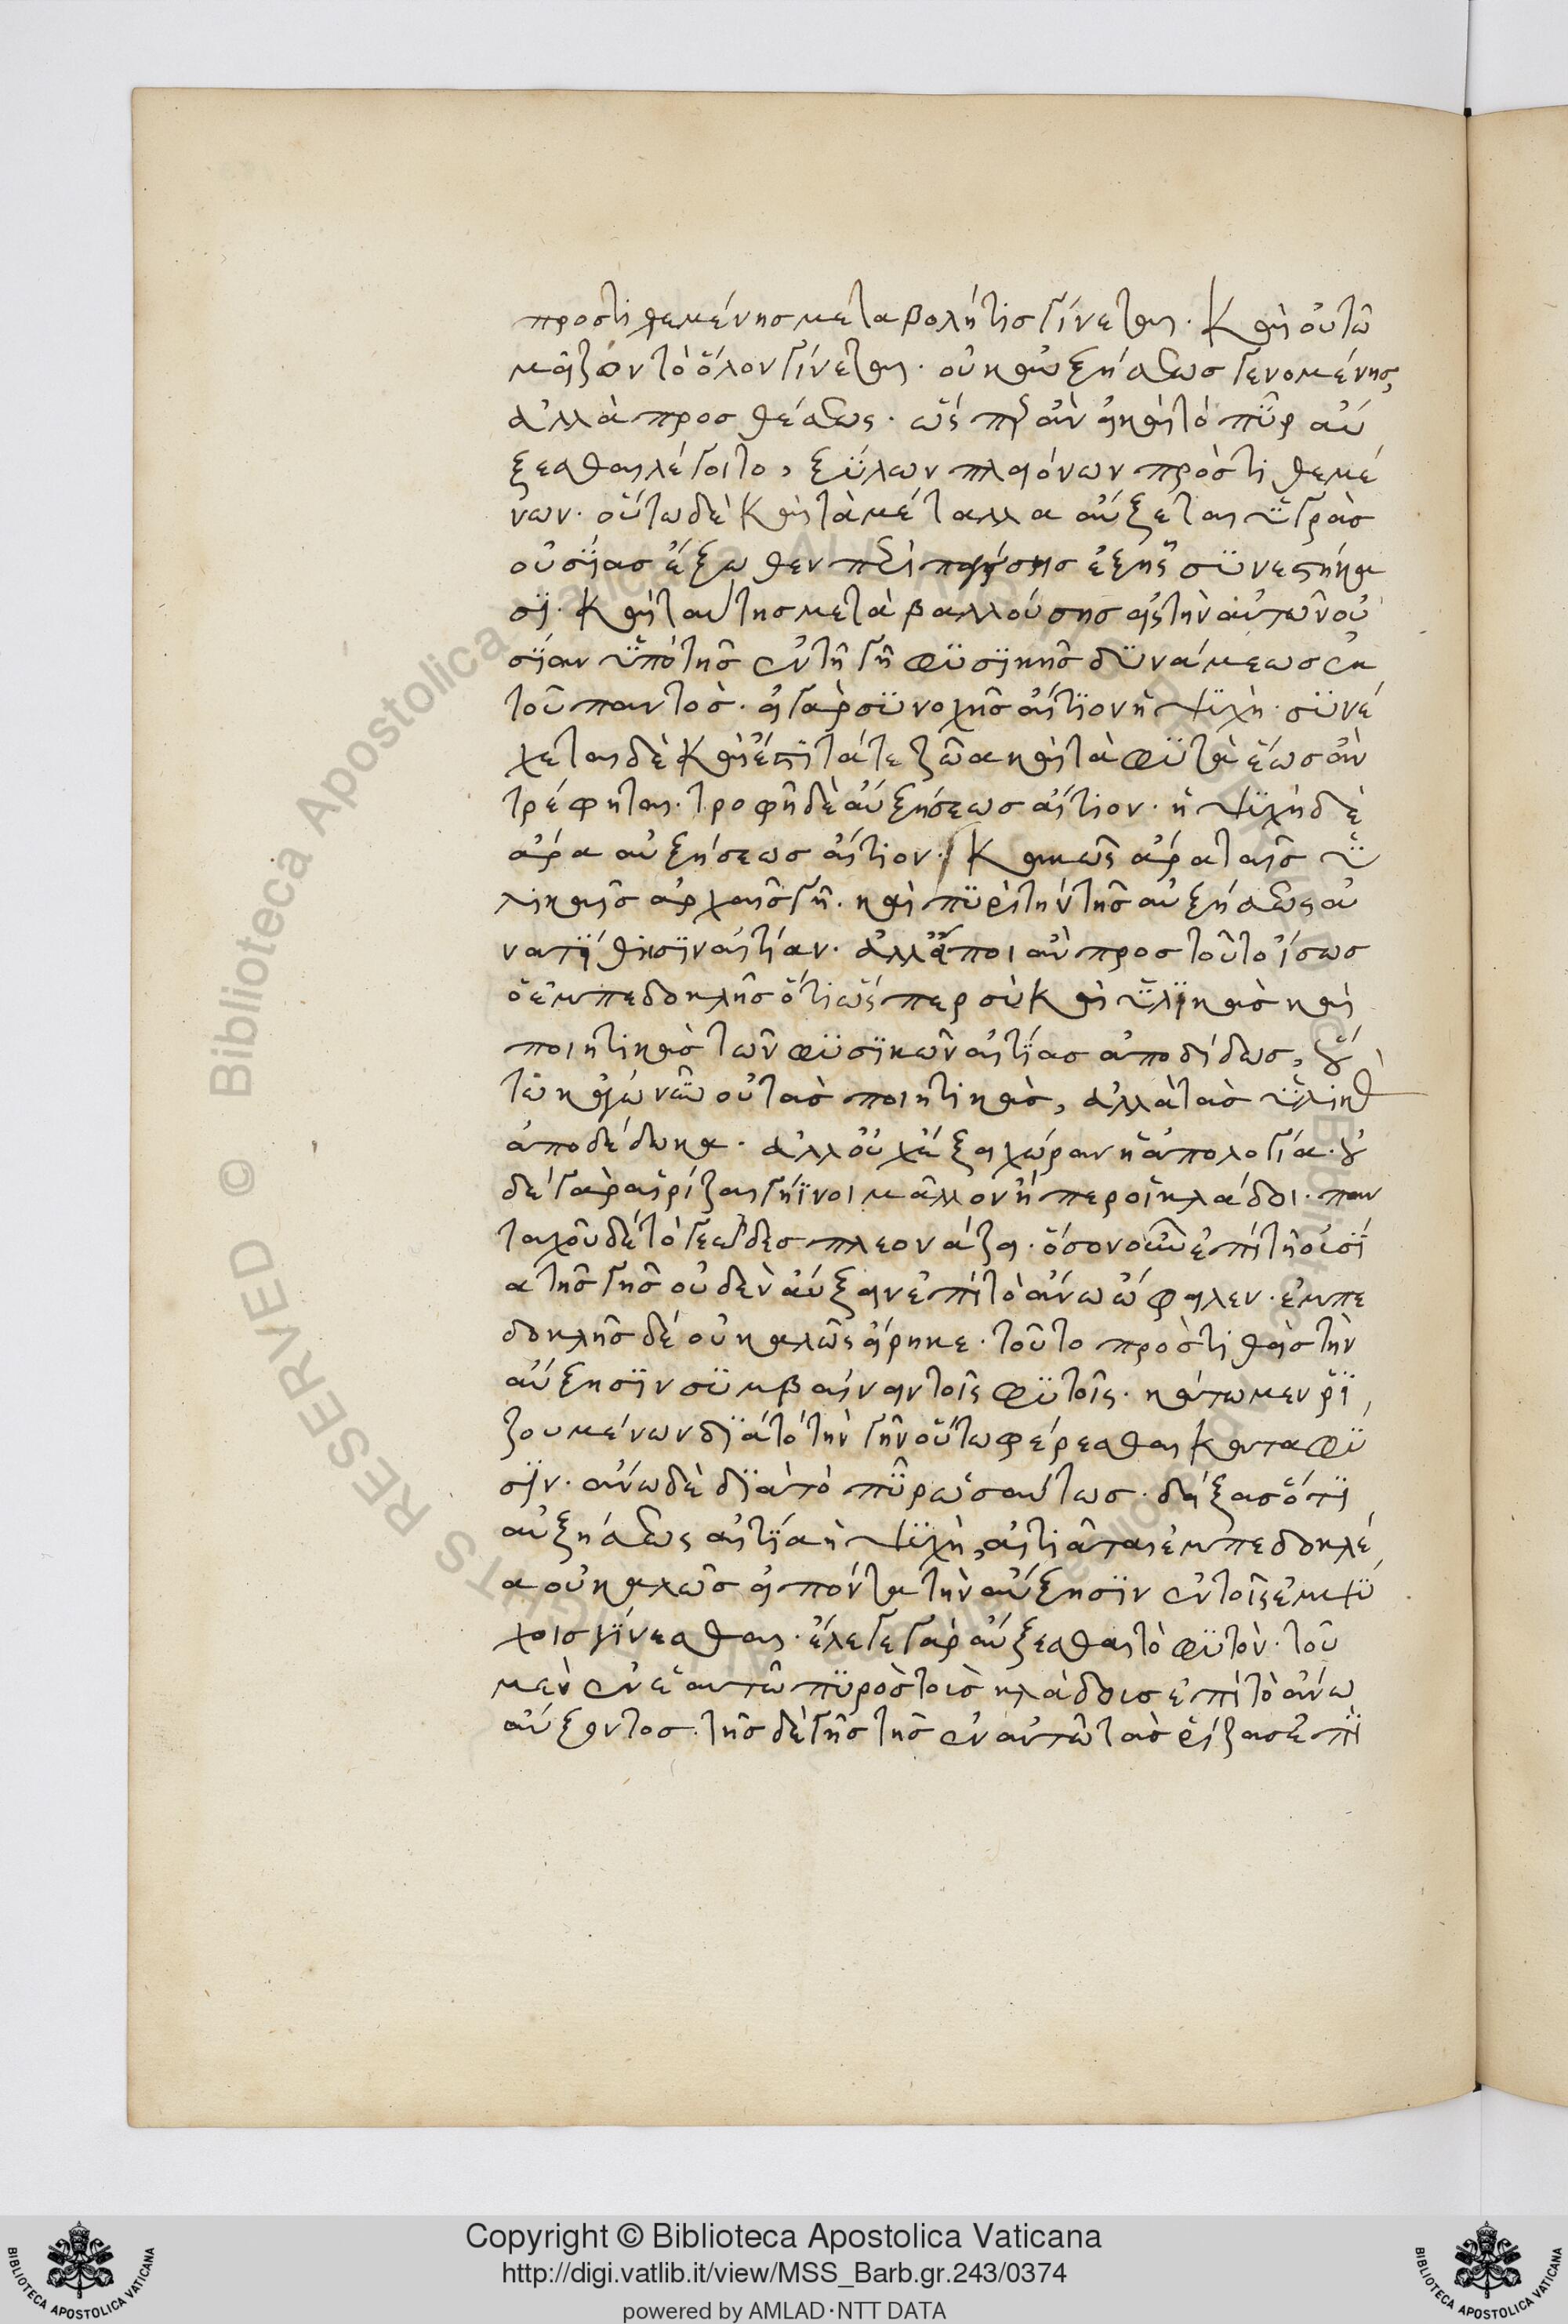 προστιθεμένης μεταβολή τις γίνεται. Καὶ οὕτω
μεῖζον τὸ ὅλον γίνεται. οὐκ αὐξήσεως γενομένης,
ἀλλὰ προσθέσεως. ὥσπερ ἂν εἰ καὶ τὸ πῦρ αὔ
ξεσθαι λέγοιτο, ξύλων πλειόνων προστιθεμέ
νων. οὕτω δὲ Καὶ τὰ μέταλλα αὔξεται ὑγρᾶς
οὐσίας ἔξωθεν ἐξ ἧς συνεστήκα
σι. Καὶ ταύτης μεταβαλλούσης εἰς τὴν αὐτῶν οὐ
σίαν ὑπὸ τῆς ἐν τῇ γῇ φυσικῆς δυνάμεως ἐκ
τοῦ παντός. εἰ γὰρ συνοχῆς αἴτιον ἡ ψυχὴ. συνέ
χεται δὲ Καὶ ἔστι τά τε ζῶα καὶ τὰ φυτὰ ἕως ἂν
τρέφηται. τροφὴ δὲ αὐξήσεως αἴτιον. ἡ ψυχὴ δὲ
ἄρα αὐξήσεως αἴτιον. Κακῶς ἄρα ταῖς ὑ
λικαῖς ἀρχαῖς γῇ. καὶ πυρὶ τὴν τῆς αὐξήσεως
αἰτίαν. ἀλλ' εἴποι ἂν προς τοῦτο ἴσως
ὁ ἐμπεδοκλῆς ὅτι ὥσπερ σὺ Καὶ ὑλικὰς καὶ
ποιητικὰς τῶν φυσικῶν αἰτίας ἀποδίδως, οὕ
τω κἀγὼ νῦν οὐ τὰς ποιητικὰς, ἀλλὰ τὰς ὑλικὰς
ἀποδέδωκα. ἀλλ' οὐχ ἕξει χώραν ἡ ἀπολογία. οὐ
δὲ γὰρ αἱ ρίζαι γήϊνοι μᾶλλον ἤπερ οἱ κλάδοι. παν
ταχοῦ δὲ τὸ γεῶδες πλεονάζει. ὅσον οὖν ἐπὶ τῇ οὐσί
α τῆς γῆς οὐδὲν αὔξειν ἐπὶ τὸ ἄνω ὤφειλεν. ἐμπε
δοκλῆς δὲ οὐ καλῶς εἴρηκε. τοῦτο προστιθεὶς τὴν
αὔξησιν συμβαίνειν τοῖς φυτοῖς. κάτω μεν ῥι
ζουμένων διὰ τὸ τὴν γῆν οὕτω φέρεσθαι κατα φύ
σιν. ἄνω δὲ διὰ τὸ πῦρ ὡσαύτως. δείξας ὅτι
αὐξήσεως αἰτία ἡ ψυχὴ, αἰτιᾶται ἐμπεδοκλέ
α οὐ καλῶς εἰπόντα τὴν αὔξησιν ἐν τοῖς ἐμψύ
χοις γίνεσθαι. ἔλεγε γὰρ αὔξεσθαι τὸ φυτὸν. τοῦ
μὲν ἐν ἑαυτῶ πυρὸς τοὺς κλάδους ἐπὶ τὸ ἄνω
αὔξοντος. τῆς δὲ γῆς τῆς ἐν αυτῶ τὰς ῥίζας ἐπὶ
Copyright © Biblioteca Apostolica Vaticana
http://digi.vatlib.it/view/MSS_Barb.gr.243/0374
powered by AMLAD·NTT DATA